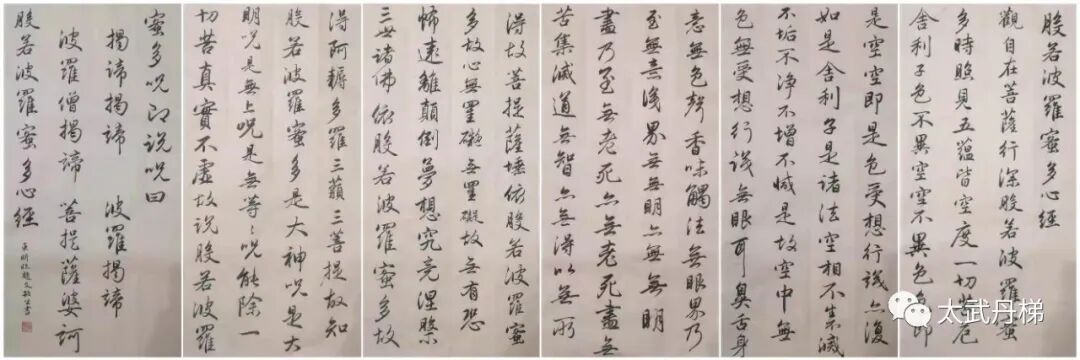 般若波羅蜜多心經
觀自在菩薩行深般若波羅蜜
多時照見五蘊皆空度一切苦厄
舍利子色不異空空不異色色即
是空空即是色受想行識亦復
如是舍利子是諸法空相不生滅
不垢不净不增不减是故空中無
色無受想行識無眼耳鼻舌身
意無色聲香味觸法無眼界乃
至無意識界無無明亦無無明
盡乃至無老死亦無老死盡無
苦集滅道無智亦無得以無所
得故菩提薩埵依般若波羅蜜
多故心無罣礙無罣礙故無有恐
怖遠離顛倒夢想究竟涅槃
三世諸佛依般若波羅蜜多故
得阿耨多羅三藐三菩提故知
般若波羅蜜多是大神咒是大
明咒是無上咒是無等〻咒能除一
切苦真實不虛故說般若波羅
蜜多咒即說咒曰
揭諦揭諦 波羅揭諦
波羅僧揭諦 菩提薩婆訶
般若波羅蜜多心經
太武丹梯